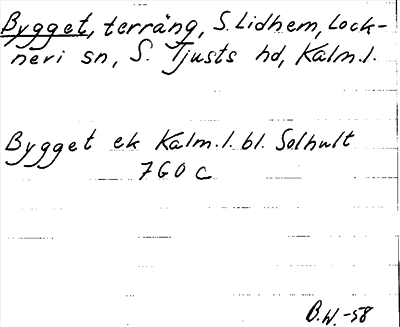 Bygget, terräng, S. Lidhem, Lock-
neri sn, S. Tjusts hd, Kalm.l.
Bygget ek Kalm.l. bl. Solhult
7G0c
B.W.-58